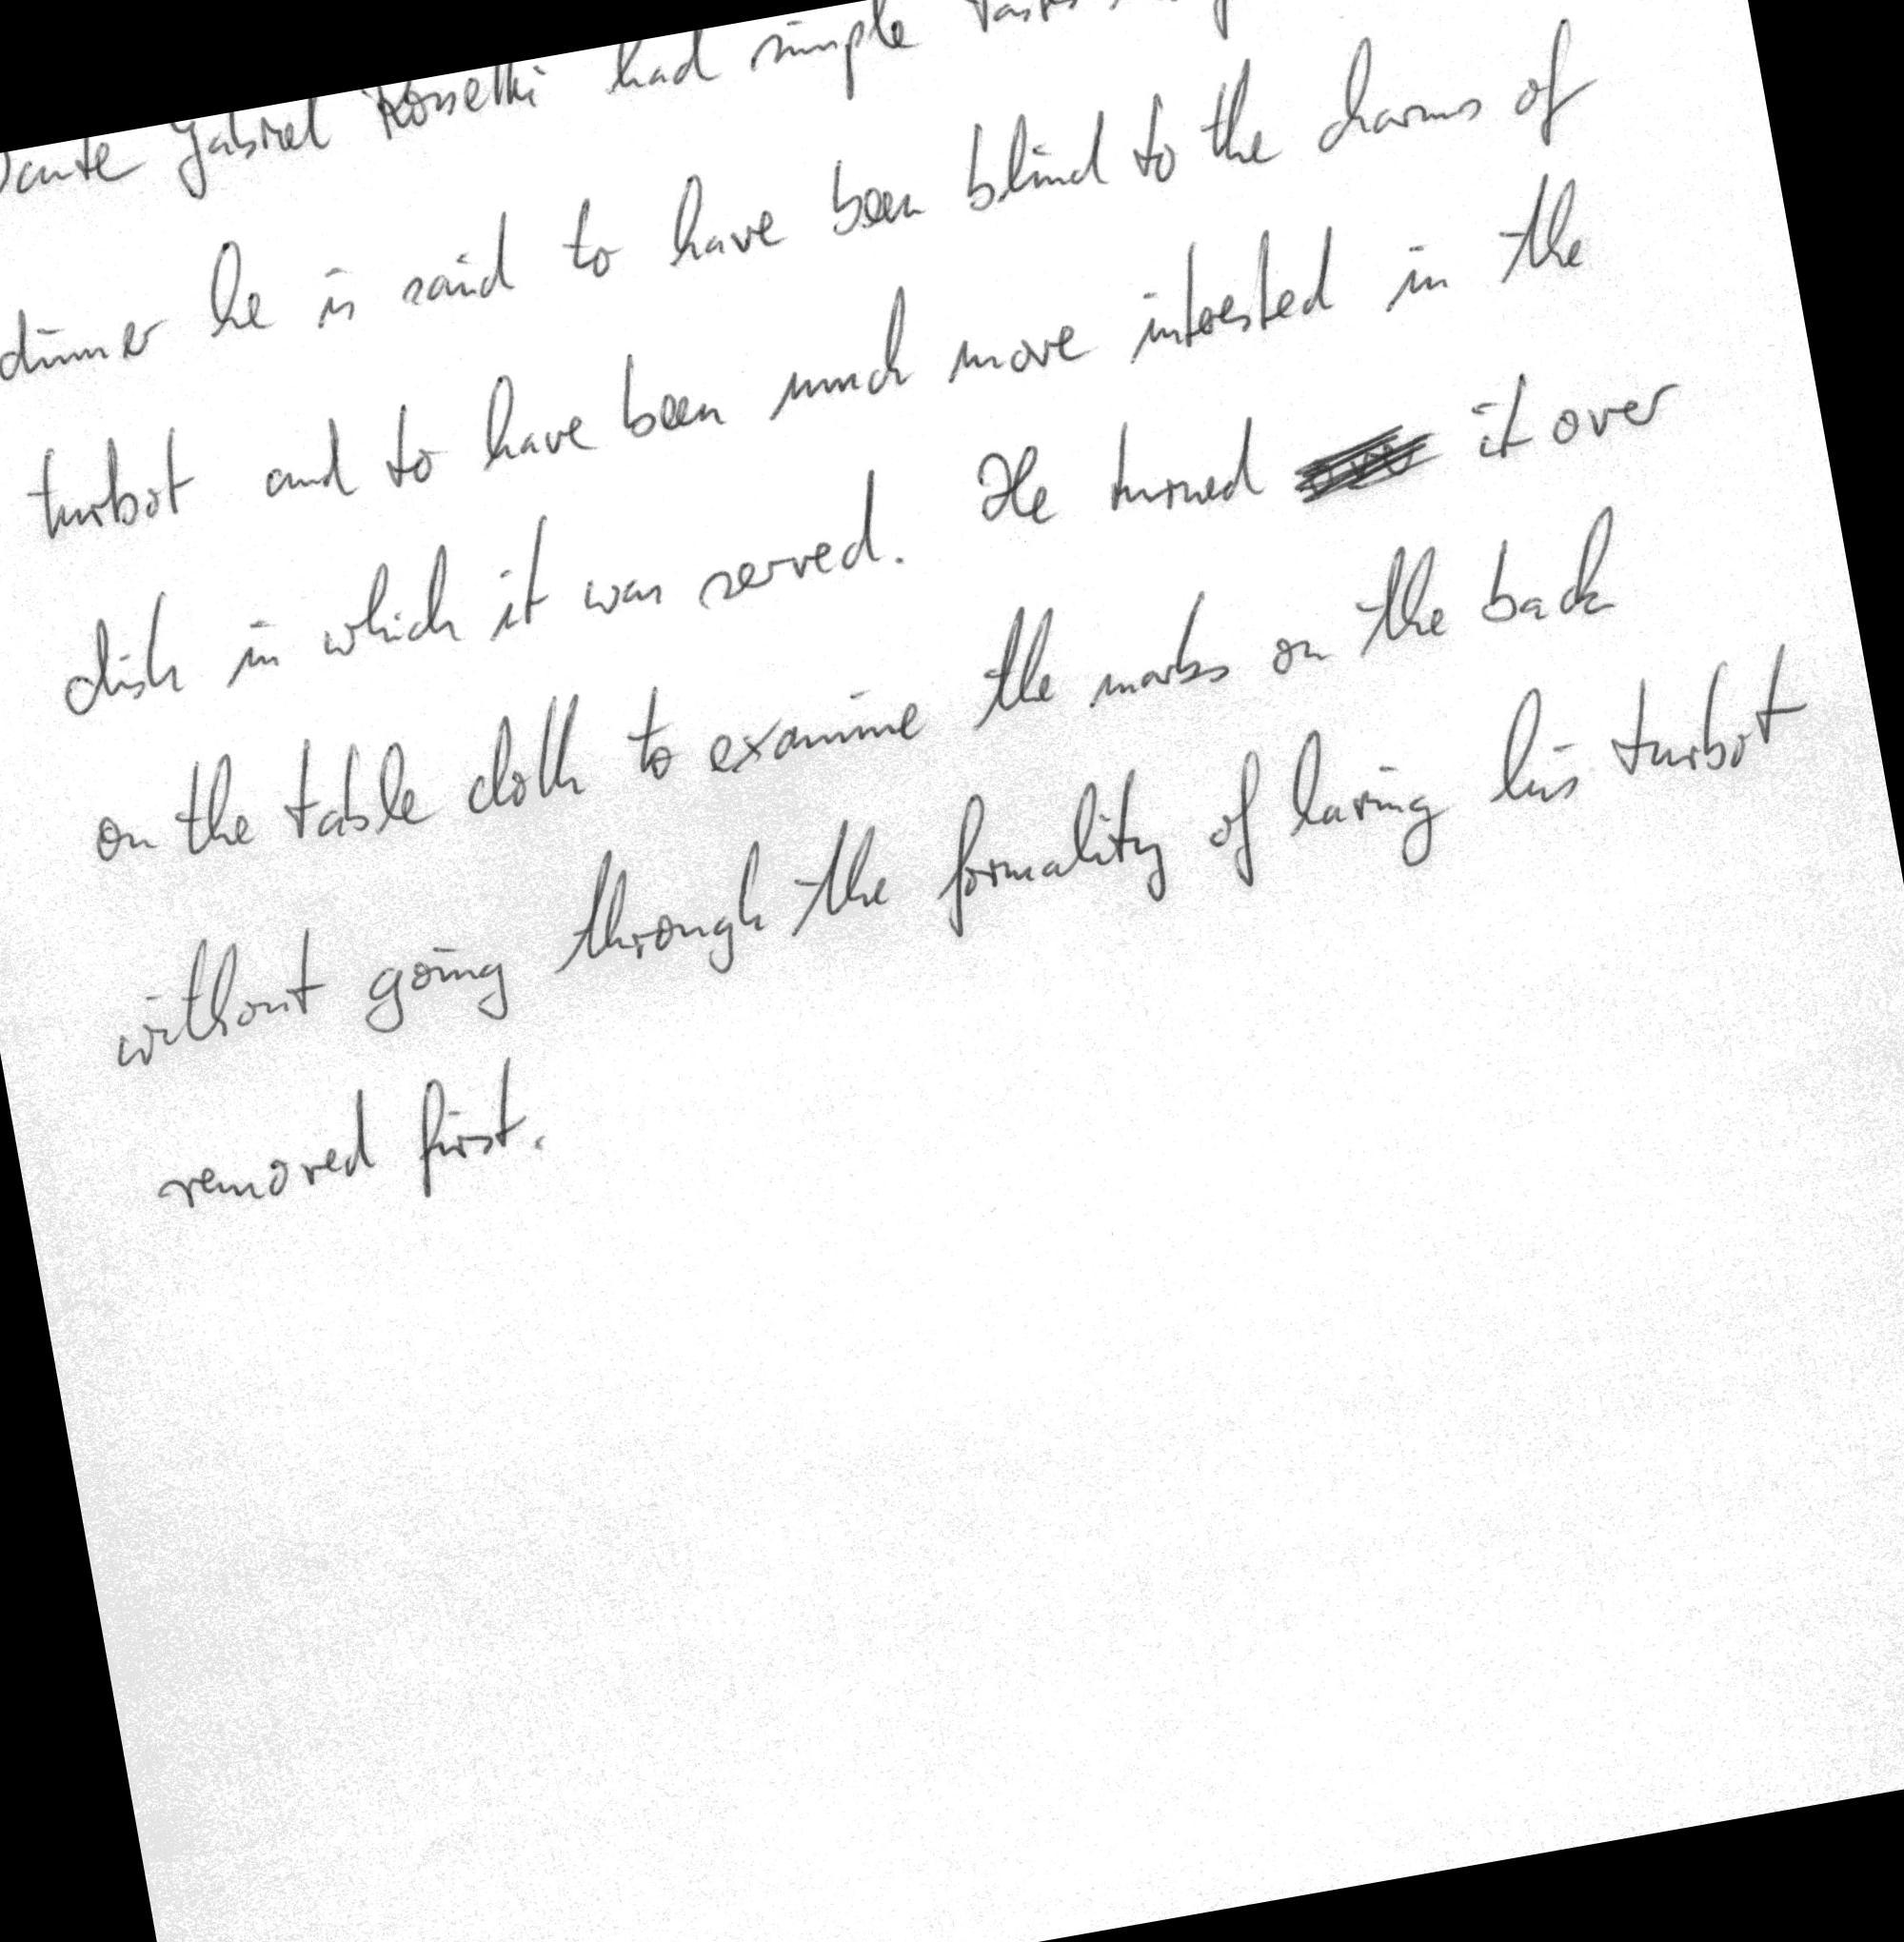 Dante Gabriel Rossetti had simple tastes
dinner he is said to have been blind to the charms of
turbot and to have been much more interested in the
dish in which it was served. He turned it over
on the table cloth to examine the marks on the back
without going through the formality of having his turbot
removed first.